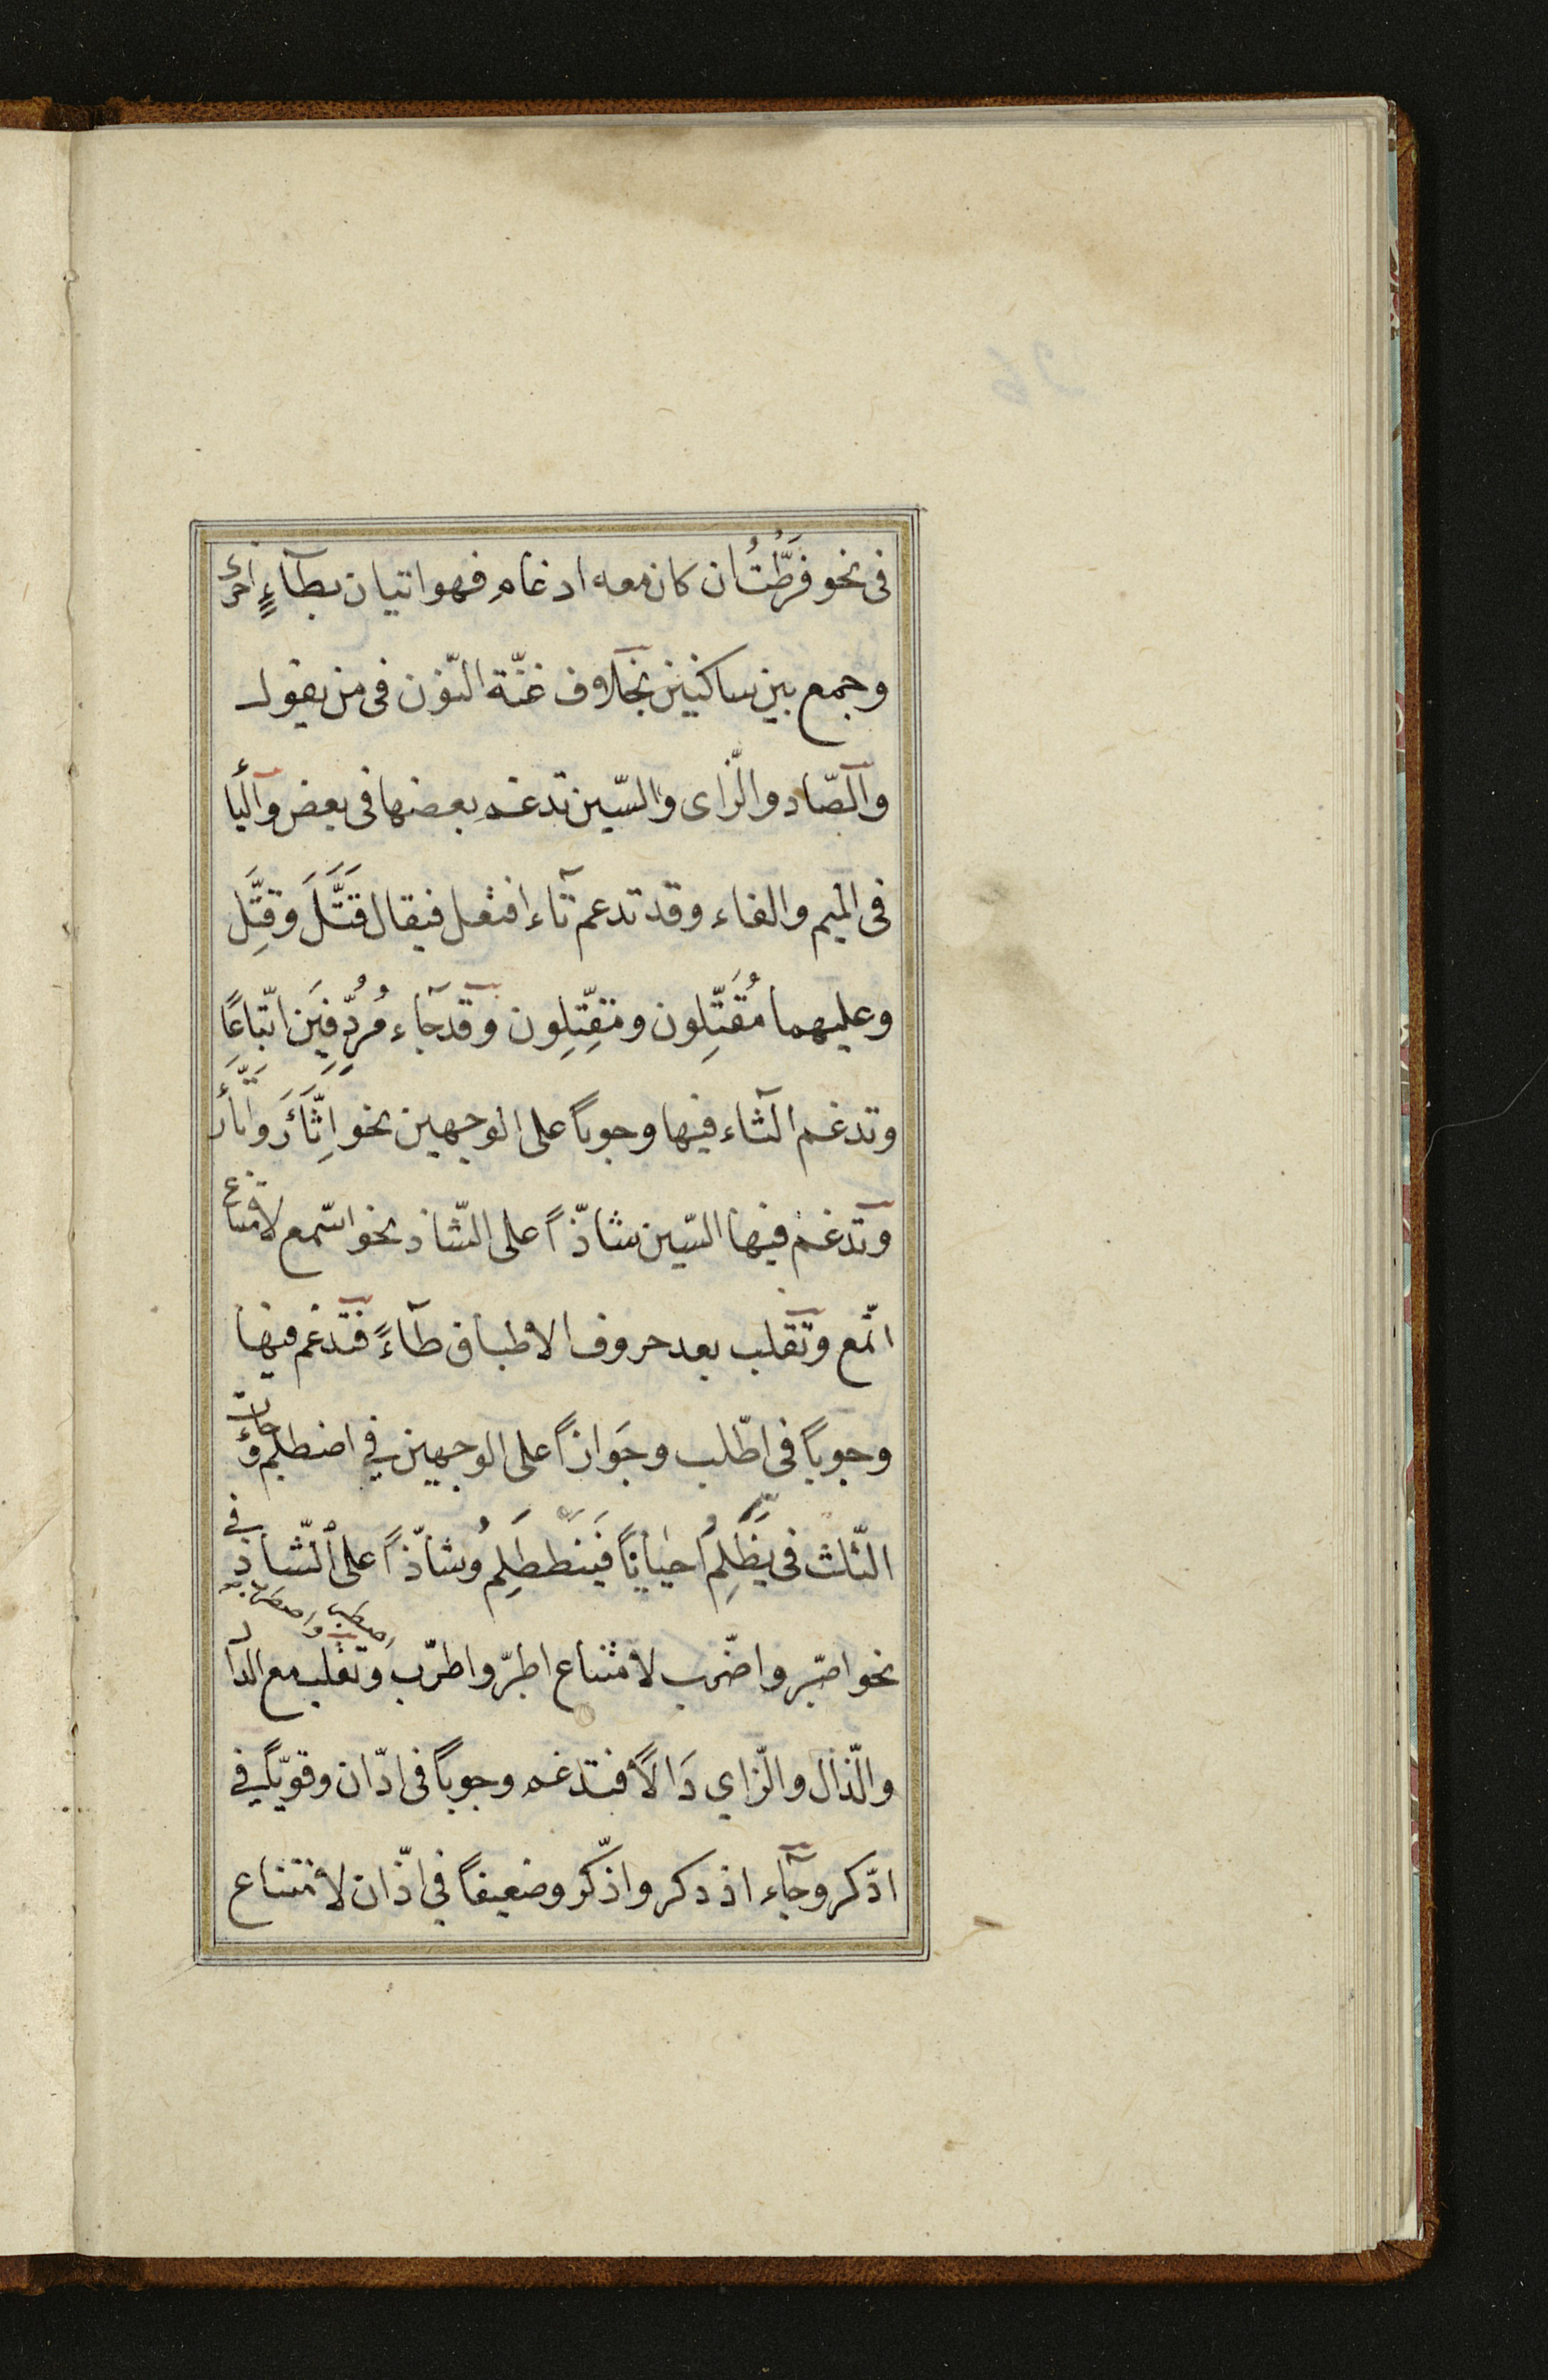 فى نحو فَرَّطْتُ ان كان معه ادغام فهو اتيان بطآءٍ اخرى
وجمع بين ساكنين بخلاف غنّة النّون فى من يقول
والصّاد والزّاى والسّين تدغم بعضها فى بعض والبا
فى الميم والفاء وقد تدغم تآء افتعل فيقال قَتَّلَ وقِتَّل
وعليهما مُقَتِّلون ومقِتِّلون وقد جآء مُرُدِّفِينَ اتّباعًا
وتدغم الثآء فيها وجوباً على الوجهين نحو اِثَّأَرَ واتَّأَرَ
وتدغم فيها السّين شاذّاً على الشّاذ نحو اسّمع لامتناع
اتّمع وتقلب بعد حروف الاطباق طآءً فتدغم فيها
وجوباً فى اطّلب وجَوازاً على الوجهين في اضطلم وجاءت
الثّلث فى يَظَّلِمُ احياناً فيَنططَلِمُ وشاذّاً على الشّاذ في
اصطبر واضطرب
نحو اصّبر واضّرب لامتناع اطبرّ واطرّب وتقلب مع الدال
والذّال والزّاي دَالاً فتدغم وجوباً فى ادّان وقويّاً في
ادّكر وجآء اذدكر واذّكر وضعيفاً في اذّان لامتناع